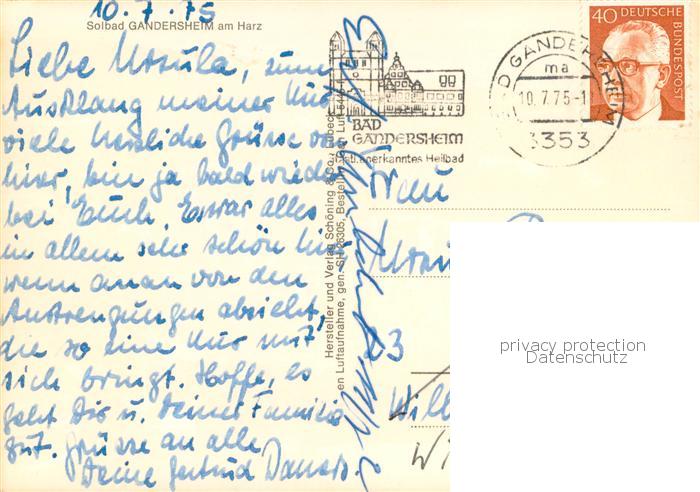 10.7.75
Solbad GANDERSHEIM am Harz
Liebe Ursula, zum
Ausklang meiner Kur
viele herzliche Grüsse von
hier, bin ja bald wieder
bei Euch. Es war alles
in allem sehr schön hier
wenn man von den
Anstrengungen absieht,
die so eine Kur mit
sich bringt. Hoffe, es
geht Dir u. Deiner Familie
gut. Grüsse an alle
Deine Gertrud
Hersteller und Verlag Schöning & Co., Lübeck
40 DEUTSCHE BUNDESPOST
BAD GANDERSHEIM
ma
10.7.75-1
3353
BAD
GANDERSHEIM
staatl. anerkanntes Heilbad
Frau
privacy protection
Datenschutz